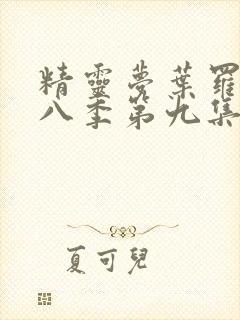 精靈夢葉羅
八季第九集
夏可兒